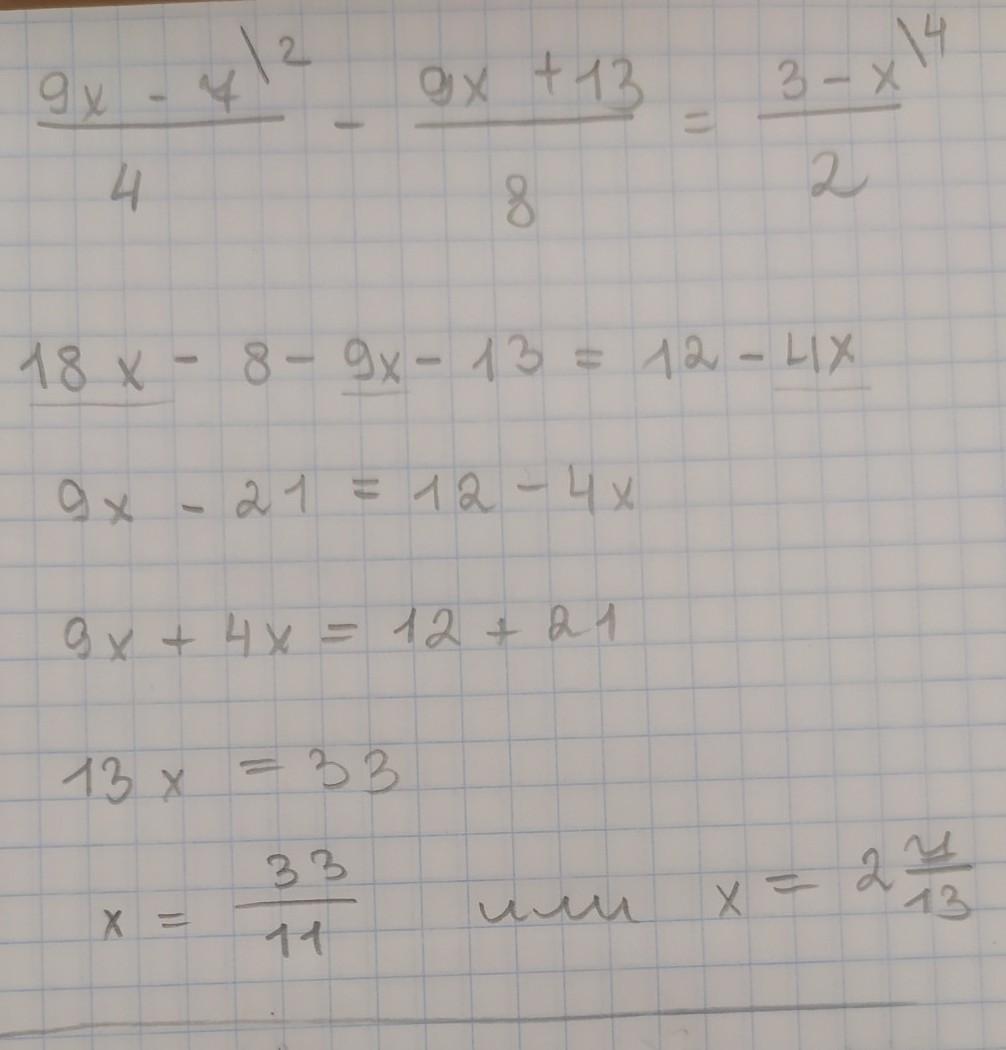 (9x - 4\2)/4 - (9x + 13)/8 = (3 - x\4)/2
18x - 8 - 9x - 13 = 12 - 4x
9x - 21 = 12 - 4x
9x + 4x = 12 + 21
13x = 33
x = 33/11 или x = 2 /13